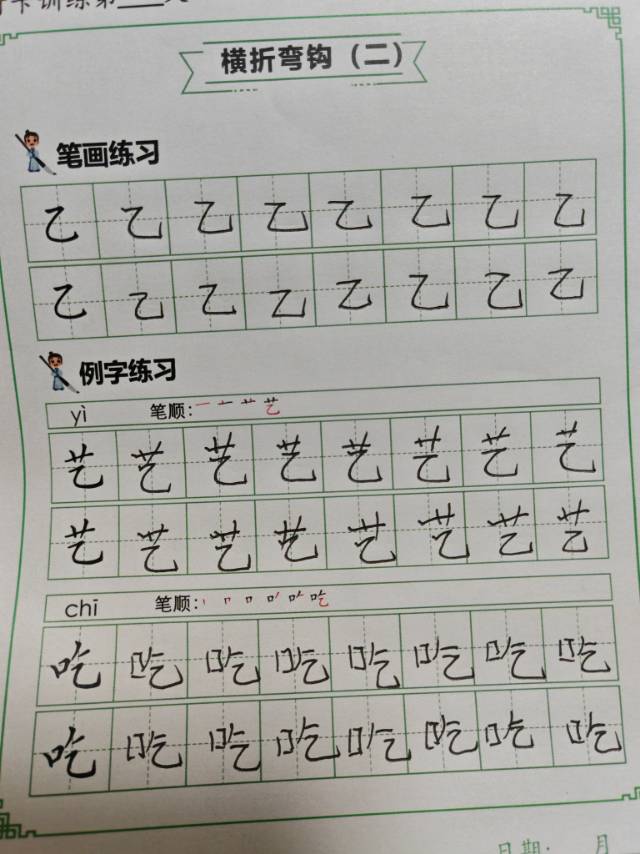 卡训练第___天
横折弯钩（二）
笔画练习
乙乙乙乙乙乙乙乙
乙乙乙乙乙乙乙乙
例字练习
yì 笔顺：一 十 艹 艺
艺艺艺艺艺艺艺艺
艺艺艺艺艺艺艺艺
chī 笔顺：
吃吃吃吃吃吃吃吃
吃吃吃吃吃吃吃吃
日期： 月